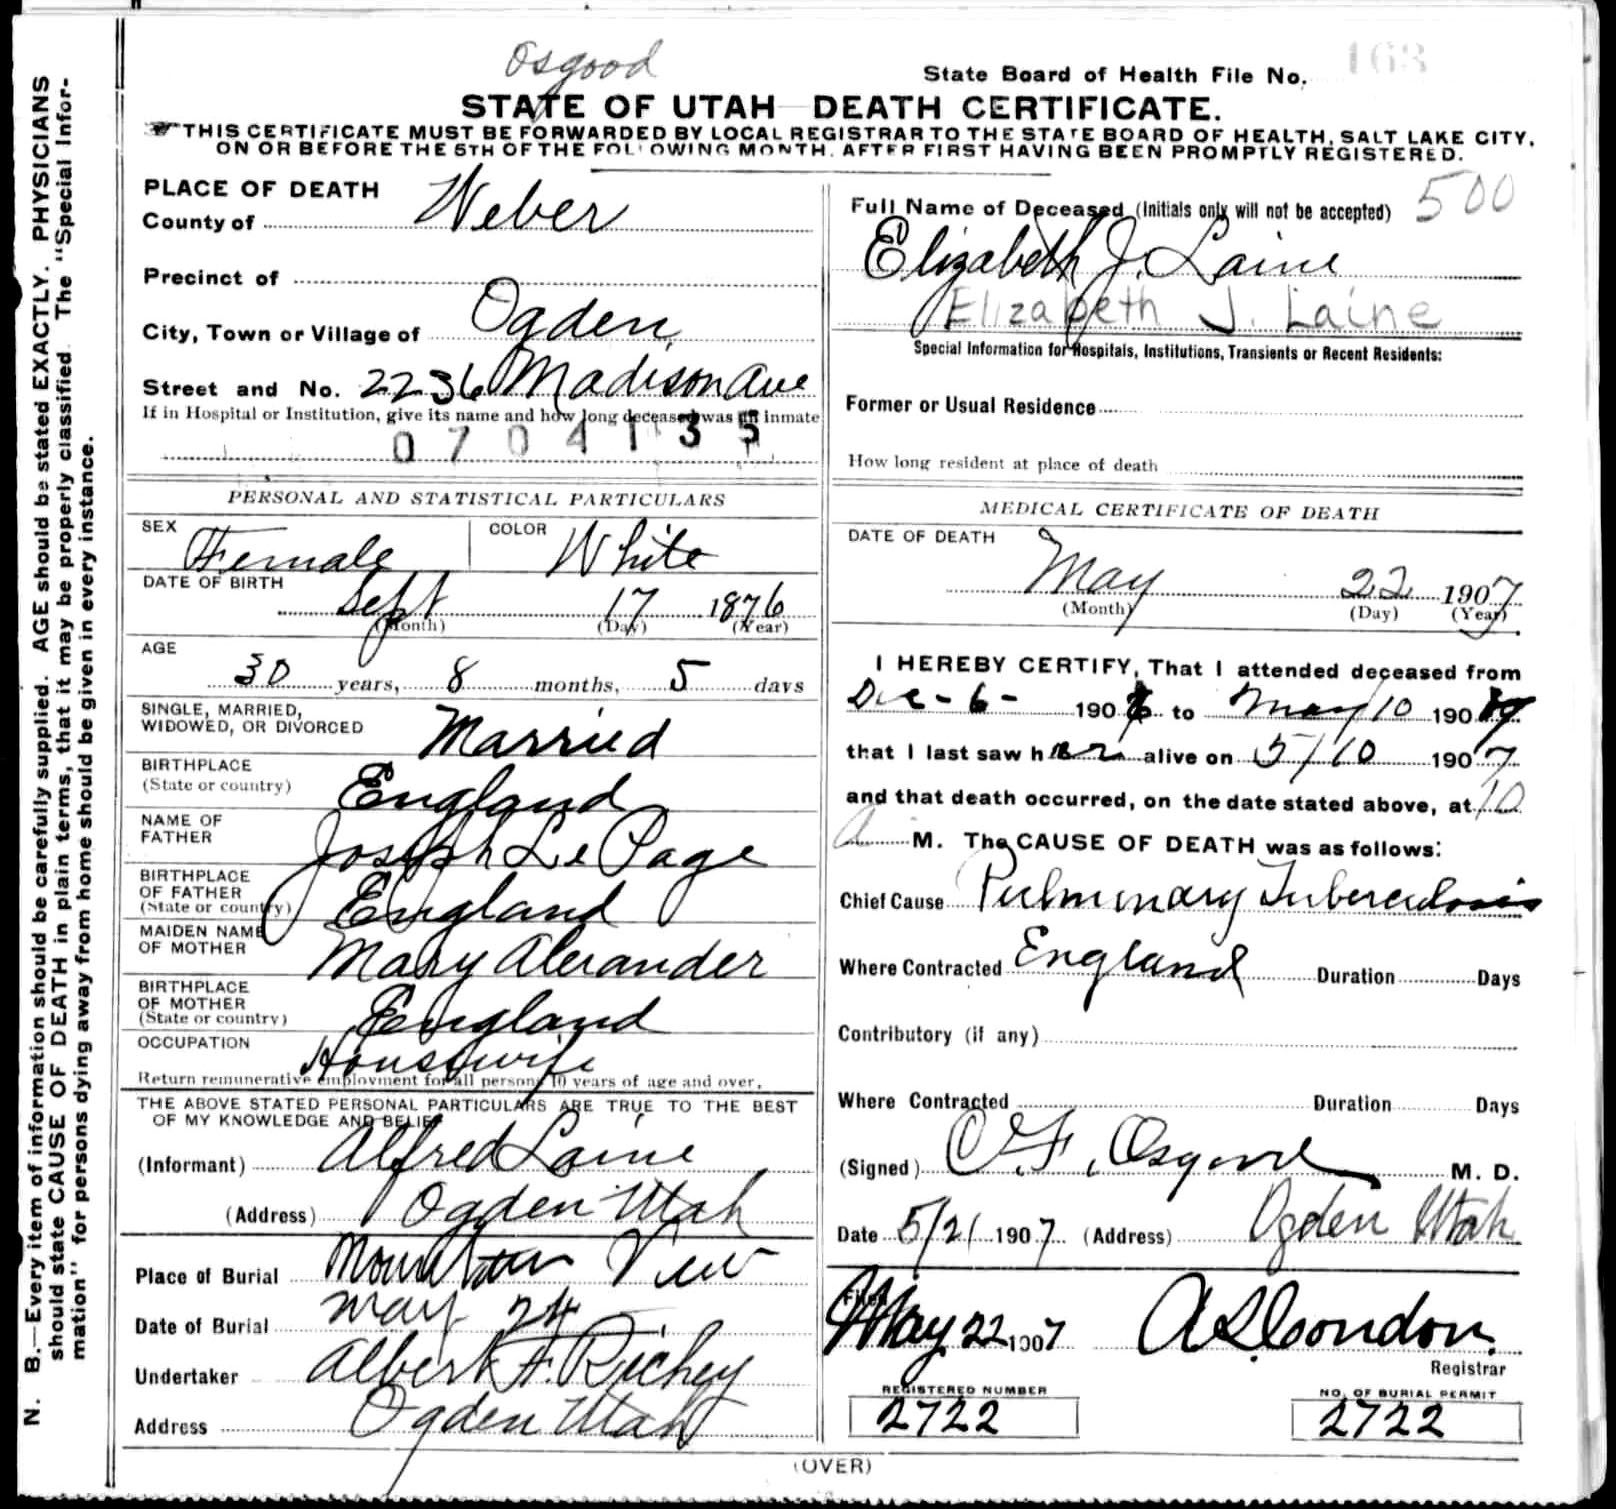 Osgood
State Board of Health File No. 163
STATE OF UTAH DEATH CERTIFICATE.
THIS CERTIFICATE MUST BE FORWARDED BY LOCAL REGISTRAR TO THE STATE BOARD OF HEALTH, SALT LAKE CITY,
ON OR BEFORE THE 5TH OF THE FOLLOWING MONTH. AFTER FIRST HAVING BEEN PROMPTLY REGISTERED.
PLACE OF DEATH
County of Weber
Precinct of
City, Town or Village of Ogden
Street and No. 2236 Madison Ave
If in Hospital or Institution, give its name and how long deceased was an inmate
0704135
PERSONAL AND STATISTICAL PARTICULARS
SEX Female COLOR White
DATE OF BIRTH
Sept 17 1876
(Month) (Day) (Year)
AGE
30 years, 8 months, 5 days
SINGLE, MARRIED,
WIDOWED, OR DIVORCED Married
BIRTHPLACE
(State or country) England
NAME OF
FATHER Joseph Le Page
BIRTHPLACE
OF FATHER
(State or country) England
MAIDEN NAME
OF MOTHER Mary Alexander
BIRTHPLACE
OF MOTHER
(State or country) England
OCCUPATION Housewife
Return remunerative employment for all persons 10 years of age and over.
THE ABOVE STATED PERSONAL PARTICULARS ARE TRUE TO THE BEST
OF MY KNOWLEDGE AND BELIEF
(Informant) Alfred Laine
(Address) Ogden Utah
Place of Burial Mountain View
Date of Burial May 24
Undertaker Albert F. Richey
Address Ogden Utah
500
Full Name of Deceased (Initials only will not be accepted)
Elizabeth J. Laine
Elizabeth J. Laine
Special Information for Hospitals, Institutions, Transients or Recent Residents:
Former or Usual Residence
How long resident at place of death
MEDICAL CERTIFICATE OF DEATH
DATE OF DEATH
May 22 1907
(Month) (Day) (Year)
I HEREBY CERTIFY, That I attended deceased from
Dec - 6 - 1906 to May 10 1907
that I last saw her alive on 5/10 1907
and that death occurred, on the date stated above, at 10
A M. The CAUSE OF DEATH was as follows:
Chief Cause Pulmonary Tuberculosis
Where Contracted England Duration Days
Contributory (if any)
Where Contracted Duration Days
(Signed) Osgood M. D.
Date 5/21 1907 (Address) Ogden Utah
Filed
May 22 1907 A S Condon.
Registrar
REGISTERED NUMBER
2722
NO. OF BURIAL PERMIT
2722
(OVER)
N. B.—Every item of information should be carefully supplied. AGE should be stated EXACTLY. PHYSICIANS
should state CAUSE OF DEATH in plain terms, that it may be properly classified. The "Special Infor-
mation" for persons dying away from home should be given in every instance.